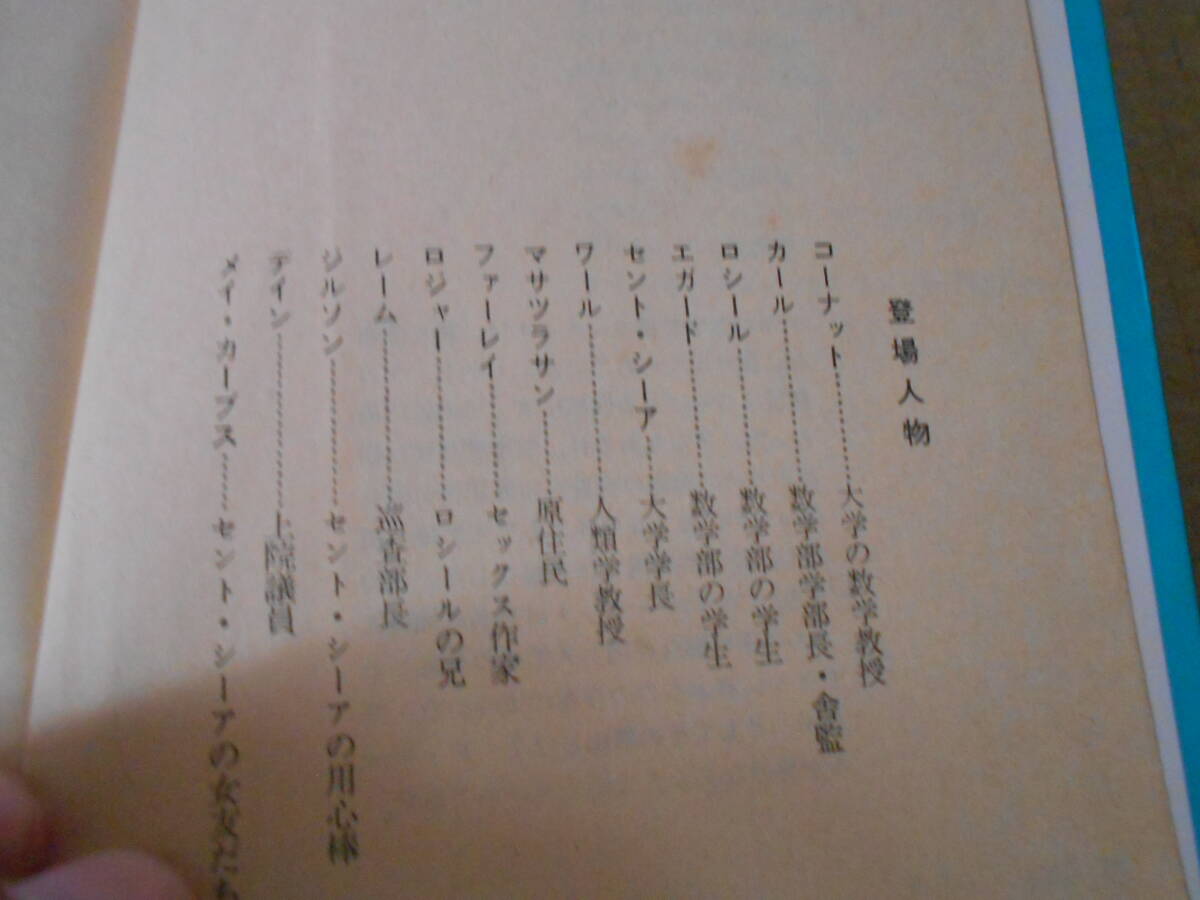 登場人物
コーナット…………大学の数学教授
カール………………数学部学部長・舎監
ロシール……………数学部の学生
エガード……………数学部の学生
セント・シーア……大学学長
ワール………………人類学教授
マサツラサン………原住民
ファーレイ…………セックス作家
ロジャー……………ロシールの兄
レーム………………巡査部長
ジルソン……………セント・シーアの用心棒
デイン………………上院議員
メイ・カーブス……セント・シーアの女友だち